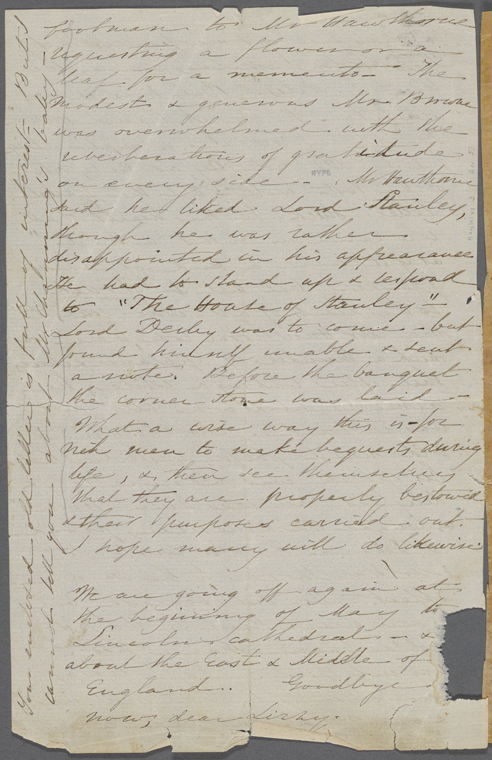 footman to Mr Hawthorne
requesting a flower or a
leaf for a memento — The
modest & generous Mr Browne
was overwhelmed with the
reverberations of gratitude
on every side — Mr Hawthorne
said he liked Lord Stanley,
though he was rather
disappointed in his appearance
He had to stand up & respond
to "The House of Stanley" —
Lord Derby was to come — but
found himself unable & sent
a note. Before the banquet
the corner stone was laid —
What a wise way this is for
rich men to make bequests during
life, & then see themselves
that they are properly bestowed
& their purposes carried out.
I hope many will do likewise
We are going off again at
the beginning of May to
Lincoln cathedral — &
about the East & Middle of
England. Goodbye
now, dear Lizzy.
Your enclosed old letter is full of interest — But I
cannot tell you about Mr Channing's baby —